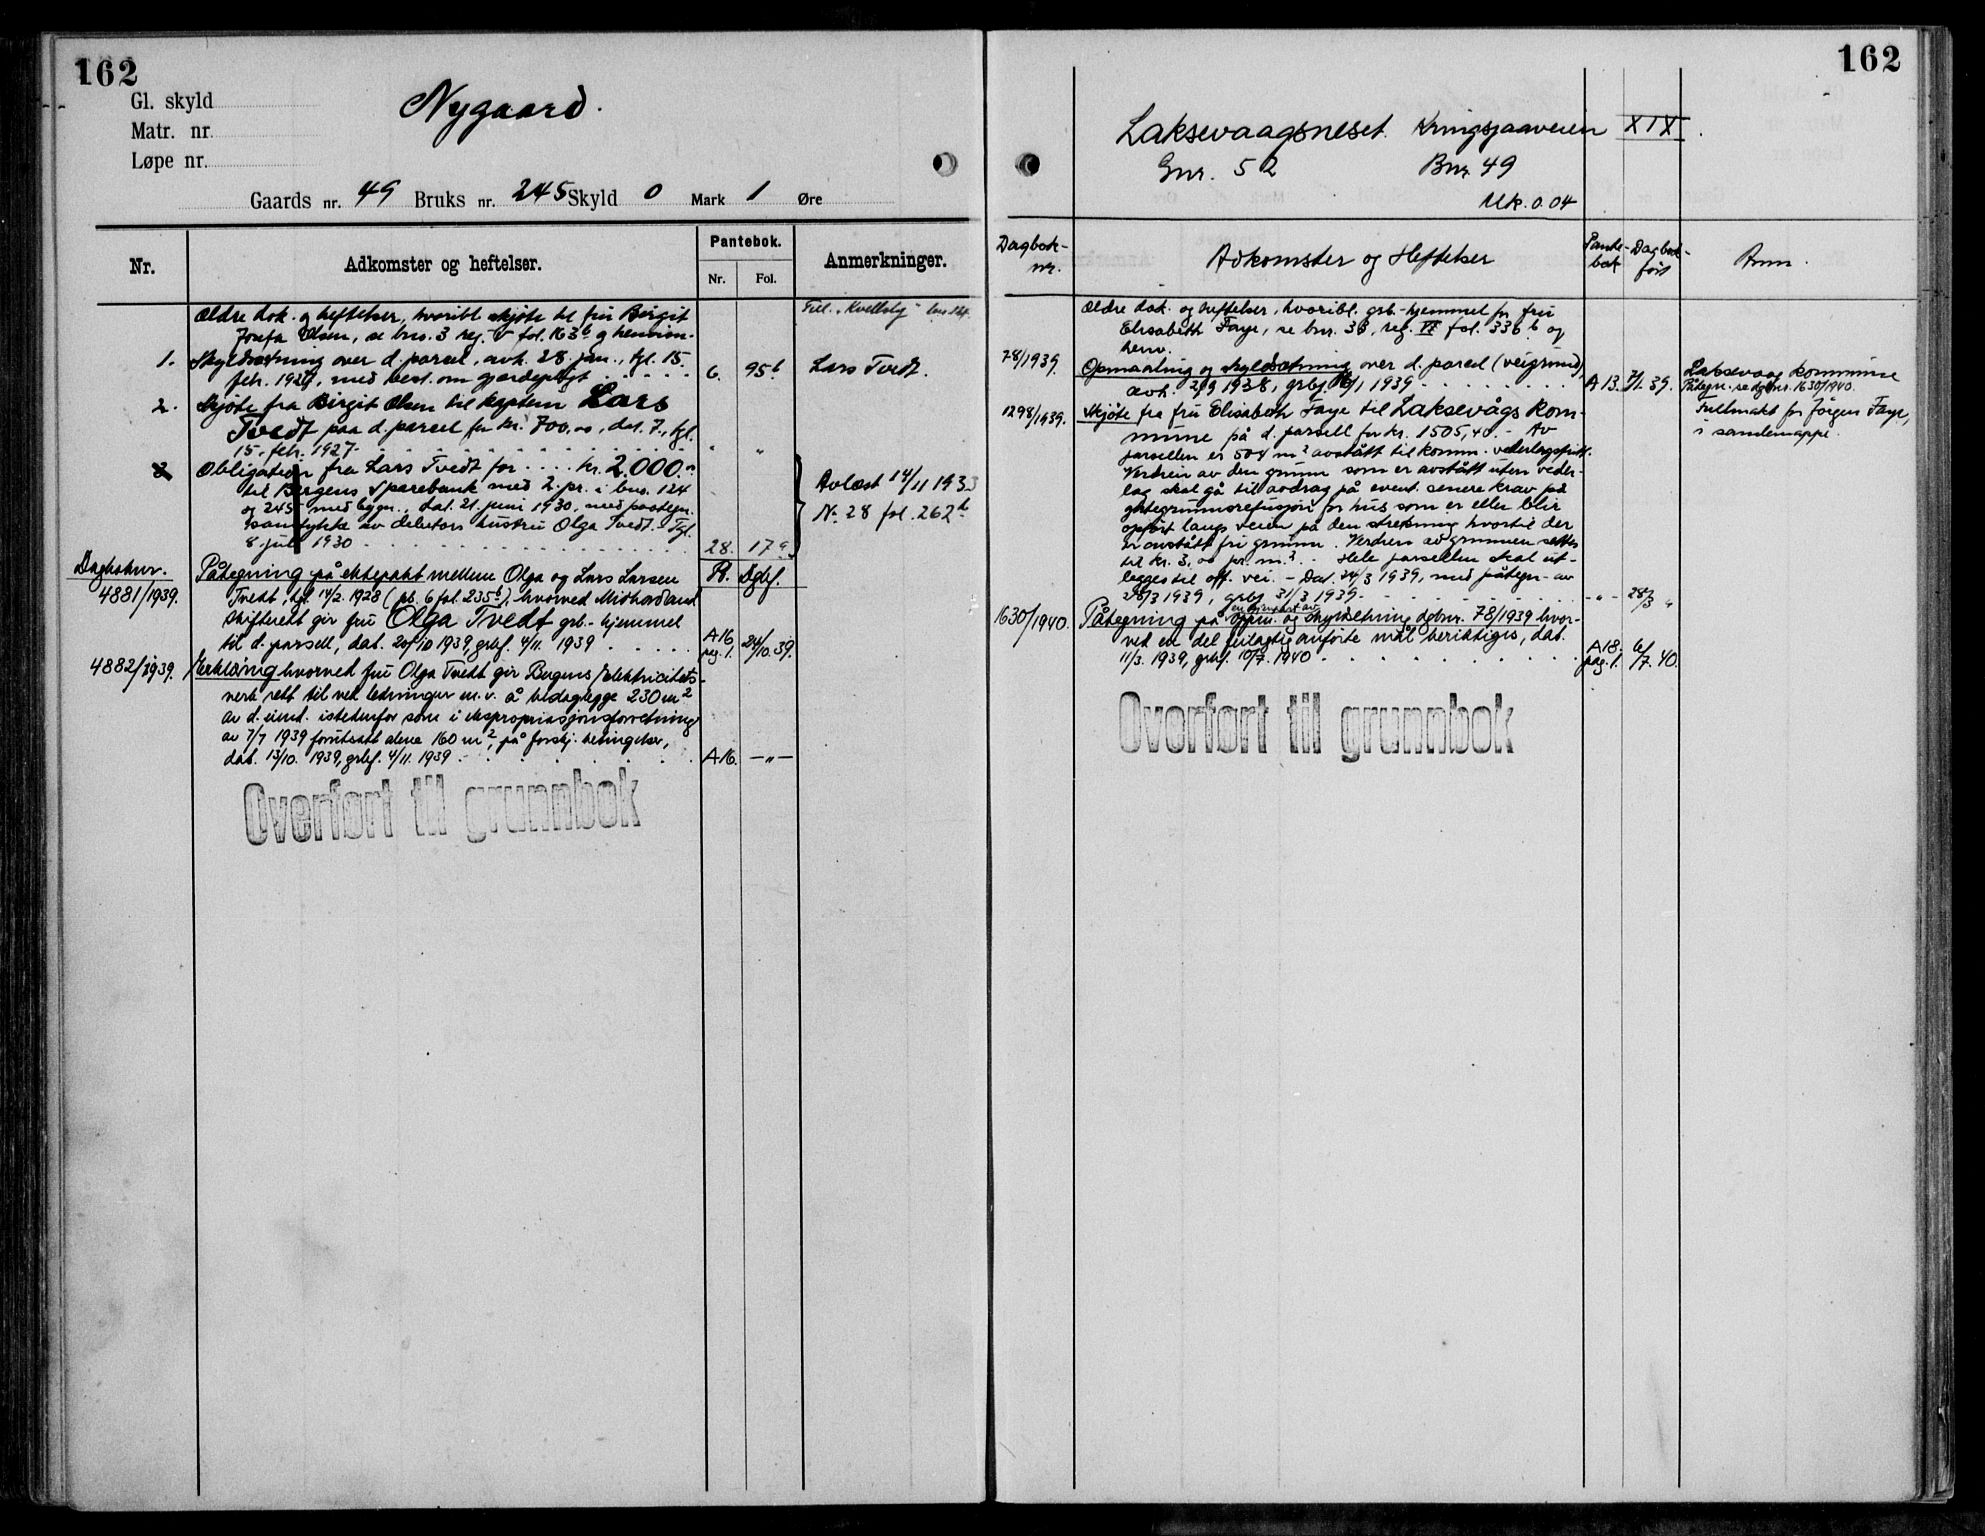 162
Gl. skyld
Matr. nr.
Løpe nr.
Nygaard.
Gaards nr. 49 Bruks nr. 245 Skyld 0 Mark 1 Øre
Nr.
Adkomster og heftelser.
Pantebok.
Nr. Fol.
Anmerkninger.
Ældre dok. og heftelser, hvoribl. skjøte til fru Birgit
Josefa Olsen, se bns. 3 reg. V fol. 163b og henvisn.
Till. "Kvellsly" bns. 124
1. Skyldsætning over d. parcel, avh. 28. jan., tgl. 15.
febr. 1927, med best. om gjerdeplygt . . . . . 6. 95b Lars Tvedt.
2. Skjøte fra Birgit Olsen til kaptein Lars
Tvedt paa d. parcel for kr. 700,00, dat. 7., tgl.
15. febr. 1927 . . . . " "
3 Obligation fra Lars Tvedt for . . . . kr. 2.000.00
til Bergens Sparebank med 2. pr. i bns. 124
og 245 med bygn., dat. 21. juni 1930, med paategn.
samtykke av debitors hustru Olga Tvedt. Tgl.
8. juli 1930 . . . . 28. 17a
Avlæst 14/11 1933
N. 28 fol. 262b
Dagboknr. Pb. Dgbf.
4881/1939. Påtegning på ektepakt mellem Olga og Lars Larsen
Tvedt, tgl. 14/2. 1928 (pb. 6 fol. 235b), hvorved Midhordland
skifterett gir fru Olga Tvedt grb.-hjemmel
til d. parsell, dat. 20/10 1939, grbf. 4/11 1939 . . . . . A16 pag. 1. 24/10. 39.
4882/1939. Erklæring hvorved fru Olga Tvedt gir Bergens Elektricitets-
verk rett til ved ledninger m.v. å beslaglegge 230 m2
av d. eiend. istedenfor som i ekspropriasjonsforretning
av 7/7 1939 forutsatt alene 160 m2, på forskj. betingelser,
dat. 13/10. 1939, grbf. 4/11. 1939 . . . . A16. —"—
Overført til grunnbok
162
Laksevaagsneset. Kringsjaaveien XIX.
Gnr. 52 Bnr. 49
Mk. 0.04
Dagbok-
nr.
Adkomster og Heftelser
Pante-
bok
Dagbok-
ført
Anm.
Ældre dok. og heftelser, hvoribl. grb.-hjemmel for fru
Elisabeth Faye, se bnr. 38, reg. VI fol. 336b og
henv.
78/1939. Opmaaling og skyldsætning over d. parcel (veigrund),
avh. 2/9 1938, grbf. 16/1 1939 . . . . . . . . . A 13. 7/1. 39.
Laksevaag kommune
Påtegn. se dgbnr. 1630/1940.
Fullmakt for Jørgen Faye,
i samlemappe.
1298/1939. Skjøte fra fru Elisabeth Faye til Laksevågs kom-
mune på d. parsell for kr. 1505,40. - Av
parsellen er 504 m2 avstått til komm. vederlagsfritt.
Verdien av den grunn som er avstått uten veder-
lag skal gå til avdrag på event. senere krav på
gategrunnsrefusjon for hus som er eller blir
opført langs veien på den strekning hvortil der
er avstått fri grunn. Verdien av grunnen settes
til kr. 3,00 pr. m2. - Hele parsellen skal ut-
legges til off. vei. - Dat. 24/3 1939, med påtegn. av
28/3 1939, grbf. 31/3 1939 . . . . . -"- 28/3 "
1630/1940. Påtegning på en gjenpart av oppm. og skyldsetning dgbnr. 78/1939 hvor-
ved en del feilagtig anførte mål beriktiges, dat.
11/3. 1939, grbf. 10/7. 1940 . . . . . A18. pag. 1. 6/7. 40.
Overført til grunnbok